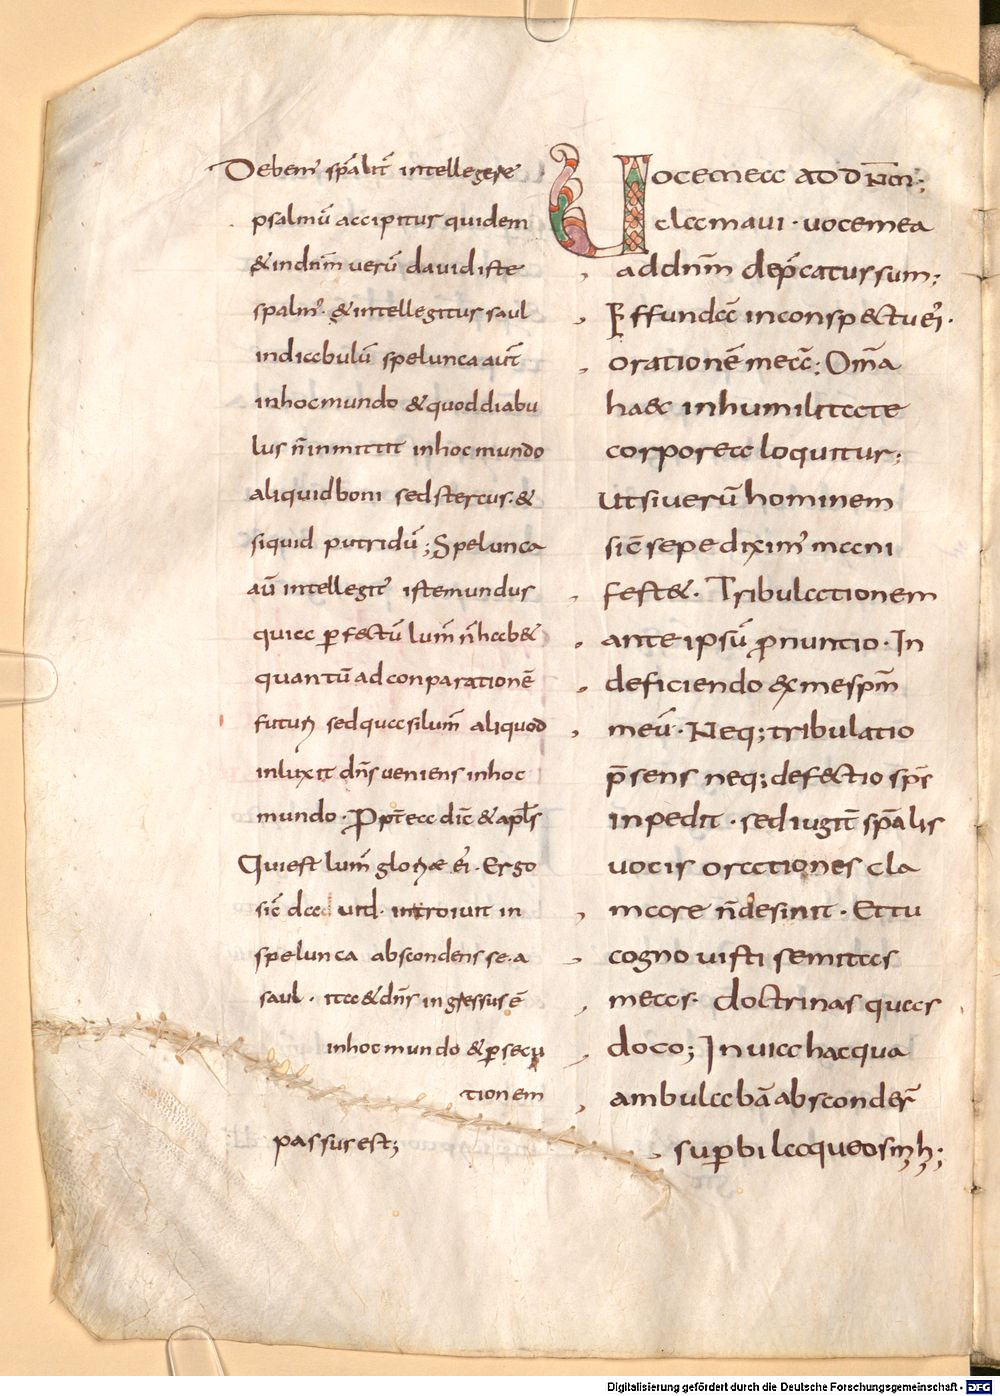 Debem᾽ sp̄alit̄ intellegere
psalmū accipitur quidem
& in dn̄m uerū dauid iste
spalm᾽. & intellegitur saul
in diabulū spelunca aut̄
in hoc mundo & quod diabu
lus n̄ inmittit in hoc mundo
aliquid boni sed stercus. &
siquid putridū; Spelunca
aū intellegit᾽ iste mundus
quia ꝑfectū lum̄ n̄ hab&
quantū ad conparationē
futuꝝ sed quasi lum̄ aliquod
inluxit dn̄s ueniens in hoc
mundo. Ꝓpt̄ea dic̄ & apl̄s
Qui est lum̄ gloriae ei᾽. Ergo
sic̄ dauid. introiuit in
spelunca abscondens se. a
saul. ita & dn̄s ingressus ē
in hoc mundo & ꝑsecu
tionem
passus est;
Uoce mea ad dn̄m;
clamaui. uoce mea
ad dn̄m dep̄catus sum;
Effundā in conspectu ei᾽.
orationē meā; Om̄a
haec in humilitate
corporea loquitur;
Ut si uerū hominem
sic̄ sepe dixim᾽ mani
fest&. Tribulationem
ante ipsū ꝓnuntio. In
deficiendo ex me sp̄m
meū. Neq; tribulatio
p̄sens neq; defectio sp̄s
inpedit. sed iugit̄ sp̄alis
uocis orationes cla
mare n̄ desinit. Et tu
cognouisti semitas
meas. doctrinas quas
doco; In uia hac qua
ambulabā absconder᾽
suꝑbi laqueos m̄h;
Digitalisierung gefördert durch die Deutsche Forschungsgemeinschaft - DFG